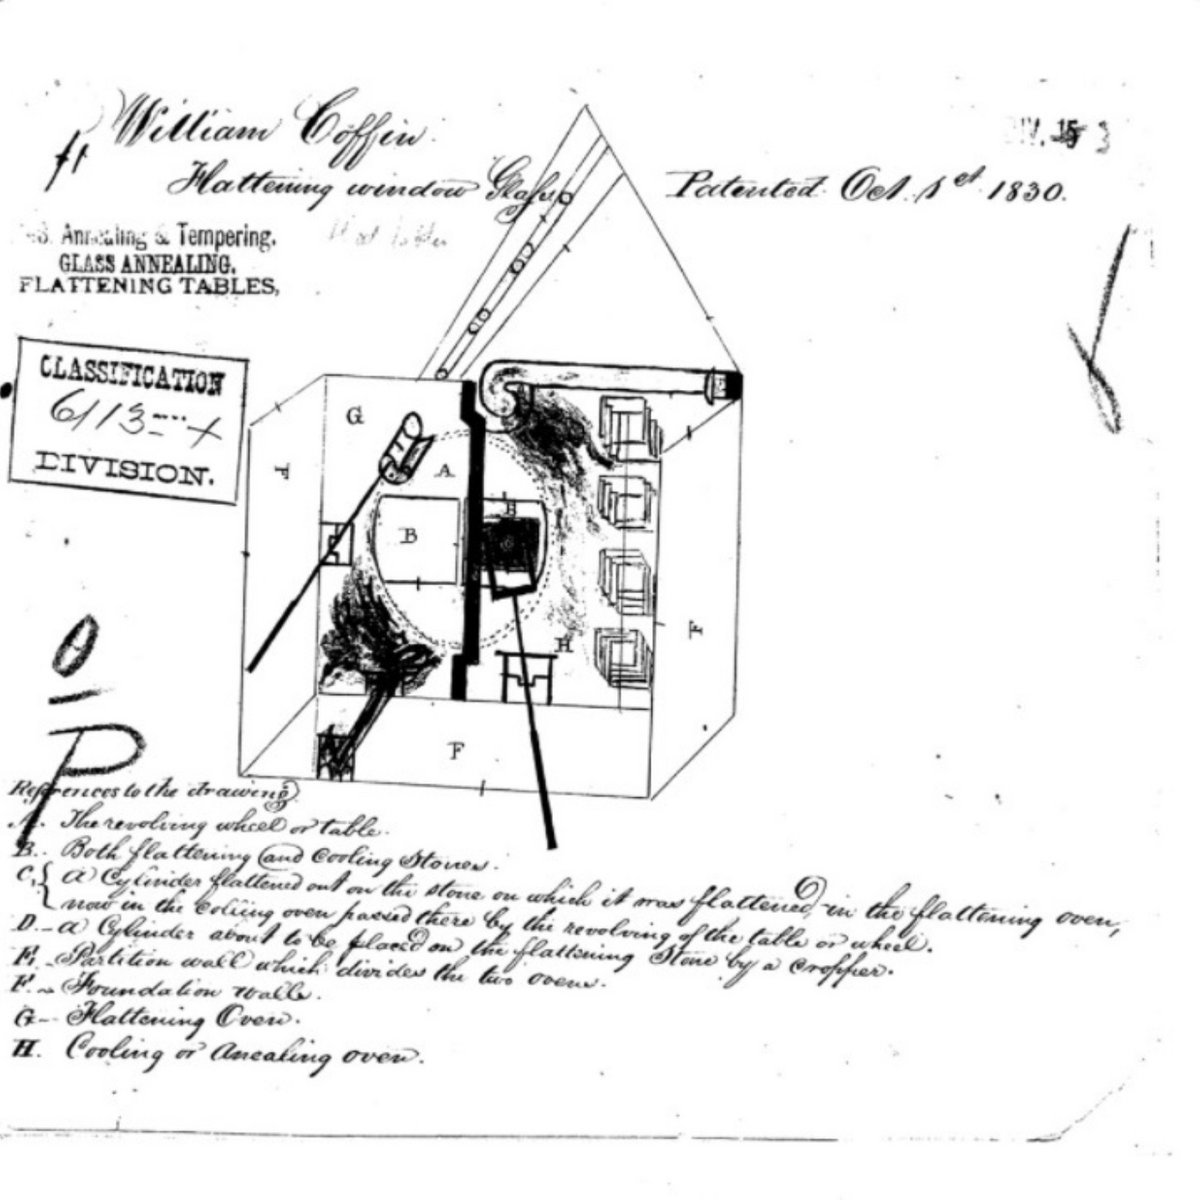 William Coffin.
Flattening window Glass
Patented Oct. 1st 1830.
DIV. 15 3
Annealing & Tempering.
GLASS ANNEALING.
FLATTENING TABLES,
CLASSIFICATION
DIVISION.
G
F
A
B
E
H
F
F
θ
P
References to the drawing
A. The revolving wheel or table.
B. Both flattening and Cooling Stones.
C, { A Cylinder flattened out on the stone on which it was flattened, in the flattening oven,
now in the cooling oven passed there by the revolving of the table or wheel.
D. - A Cylinder about to be placed on the flattening Stone by a cropper.
E. - Partition wall which divides the two ovens.
F. - Foundation walls.
G - Flattening Oven.
H. Cooling or Anealing oven.